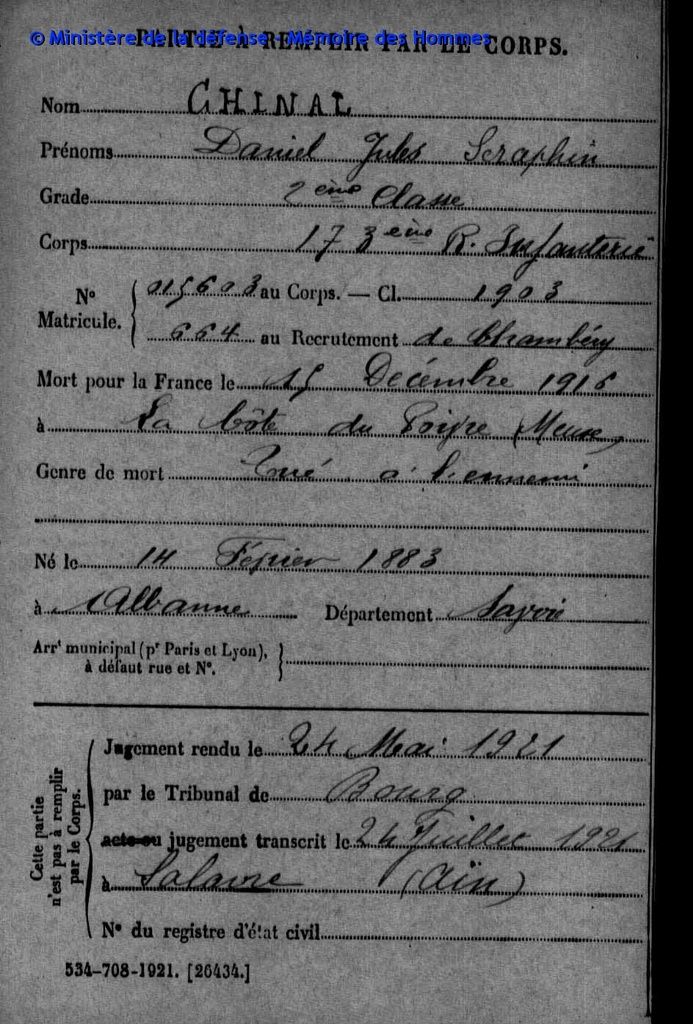 © Ministère de la défense - Mémoire des Hommes
PARTIE À REMPLIR PAR LE CORPS.
Nom CHINAL
Prénoms Daniel Jules Séraphin
Grade 2ème Classe
Corps 173ème R. Infanterie
N° Matricule. { 015603 au Corps. — Cl. 1903
664 au Recrutement de Chambéry
Mort pour la France le 15 Décembre 1916
à La Côte du Poivre (Meuse)
Genre de mort Tué à l'ennemi
Né le 14 Février 1883
à Albanne Département Savoie
Arrt municipal (pr Paris et Lyon), }
à défaut rue et N°.
Cette partie n'est pas à remplir par le Corps.
Jugement rendu le 24 Mai 1921
par le Tribunal de Bourg
acte ou jugement transcrit le 24 Juillet 1921
à (Ain)
N° du registre d'état civil
534-708-1921. [26434.]